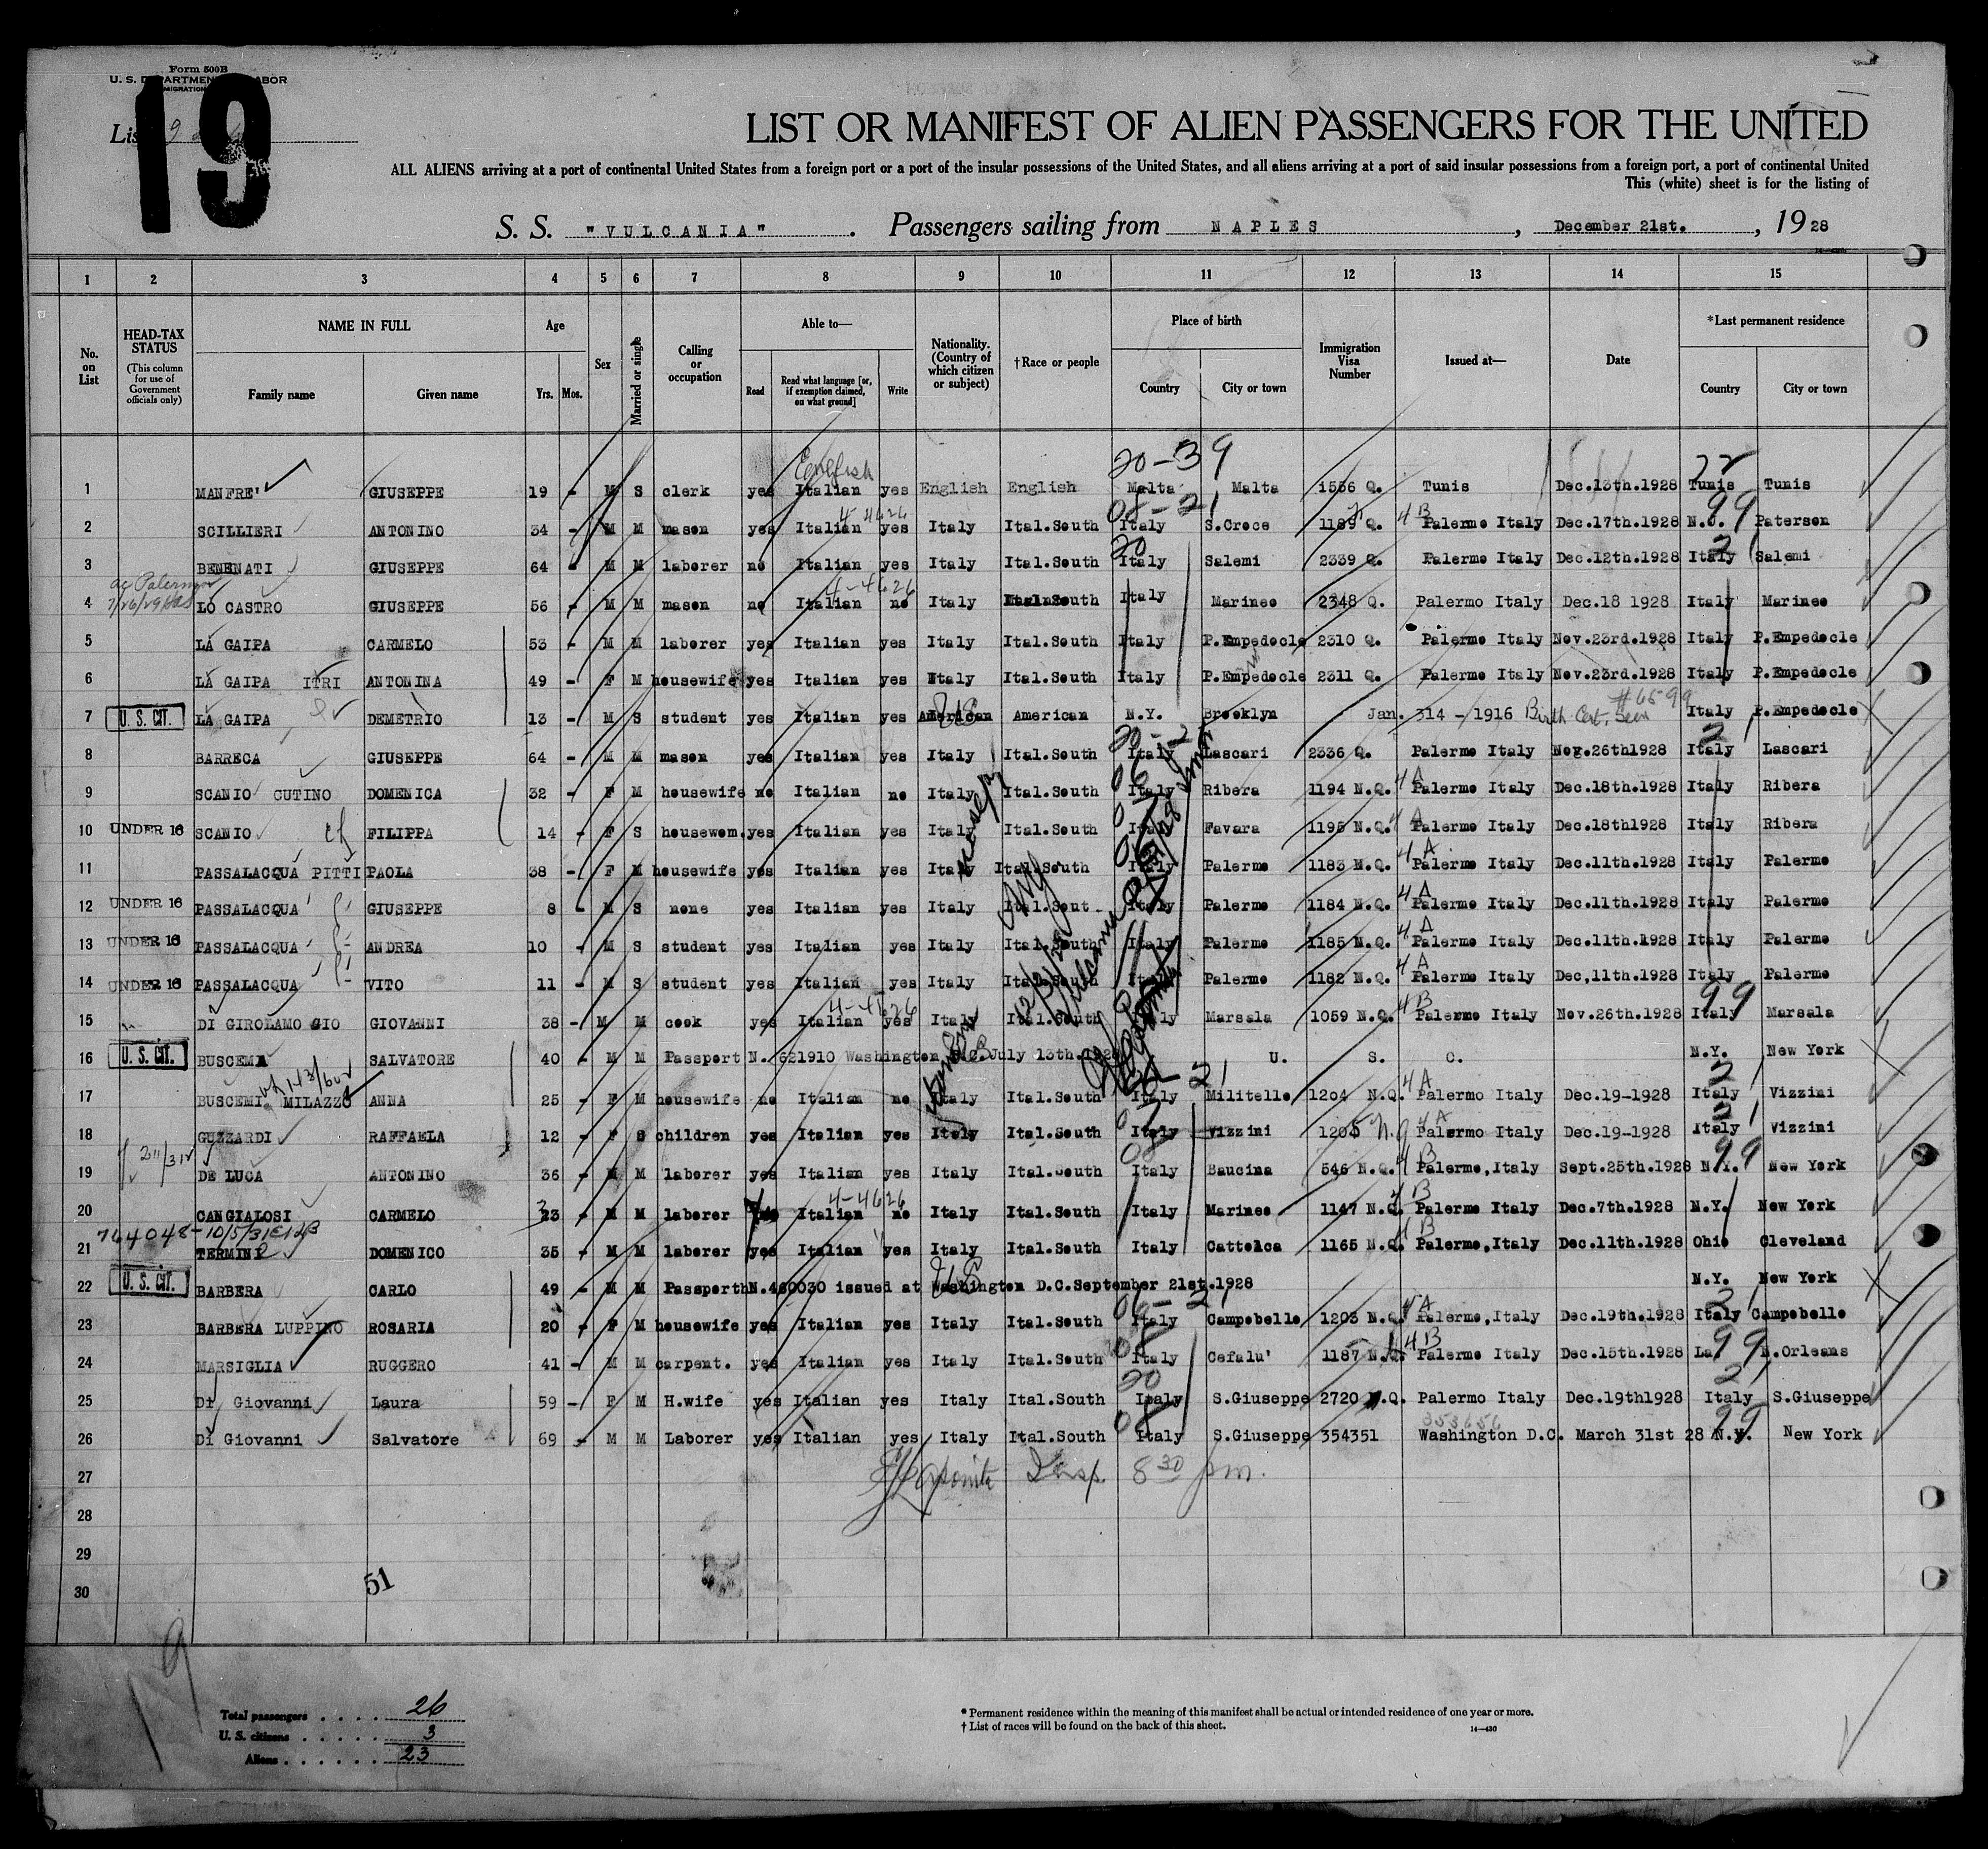 Form 500B
U. S. DEPARTMENT LABOR
19
List 9
LIST OR MANIFEST OF ALIEN PASSENGERS FOR THE UNITED
ALL ALIENS arriving at a port of continental United States from a foreign port or a port of the insular possessions of the United States, and all aliens arriving at a port of said insular possessions from a foreign port, a port of continental United
This (white) sheet is for the listing of
S. S. "VULCANIA". Passengers sailing from NAPLES, December 21st., 1928
1 2 3 4 5 6 7 8 9 10 11 12 13 14 15
No. on List HEAD-TAX STATUS (This column for use of Government officials only) NAME IN FULL Family name Given name Age Yrs. Mos. Sex Married or single Calling or occupation Able to— Read Read what language [or, if exemption claimed, on what ground] Write Nationality. (Country of which citizen or subject) †Race or people Place of birth Country City or town Immigration Visa Number Issued at— Date *Last permanent residence Country City or town
English 20-39 22
1 MANFRE' GIUSEPPE 19 - M S clerk yes Italian yes English English Malta Malta 1556 Q. Tunis Dec.13th.1928 Tunis Tunis
4-4626 08-21 99
2 SCILLIERI ANTONINO 34 - M M mason yes Italian yes Italy Ital.South Italy S.Croce 1189 Q. 4B Palermo Italy Dec.17th.1928 N.J. Paterson
20 21
3 BENENATI GIUSEPPE 64 - M M laborer no Italian yes Italy Ital.South Italy Salemi 2339 Q. Palermo Italy Dec.12th.1928 Italy Salemi
Palermo 4-4626
4 LO CASTRO GIUSEPPE 56 - M M mason no Italian no Italy Ital.South Italy Marineo 2348 Q. Palermo Italy Dec.18 1928 Italy Marineo
5 LA GAIPA CARMELO 53 - M M laborer yes Italian yes Italy Ital.South Italy P.Empedocle 2310 Q. Palermo Italy Nov.23rd.1928 Italy P.Empedocle
6 LA GAIPA ITRI ANTONINA 49 - F M housewife yes Italian yes Italy Ital.South Italy P.Empedocle 2311 Q. Palermo Italy Nov.23rd.1928 Italy P.Empedocle
#6599
7 U. S. CIT. LA GAIPA DEMETRIO 13 - M S student yes Italian yes American American N.Y. Brooklyn Jan. 314 - 1916 Birth Cert. Seen Italy P.Empedocle
20-21 21
8 BARRECA GIUSEPPE 64 - M M mason yes Italian yes Italy Ital.South Italy Lascari 2336 Q. Palermo Italy Nov.26th1928 Italy Lascari
9 SCANIO CUTINO DOMENICA 32 - F M housewife no Italian no Italy Ital.South Italy Ribera 1194 N.Q. 4A Palermo Italy Dec.18th.1928 Italy Ribera
10 UNDER 16 SCANIO FILIPPA 14 - F S housewom. yes Italian yes Italy Ital.South Italy Favara 1195 N.Q. 4A Palermo Italy Dec.18th1928 Italy Ribera
11 PASSALACQUA PITTI PAOLA 38 - F M housewife yes Italian yes Italy Ital.South Italy Palermo 1183 N.Q. 4A Palermo Italy Dec.11th.1928 Italy Palermo
12 UNDER 16 PASSALACQUA GIUSEPPE 8 - M S none yes Italian yes Italy Ital.Sout Italy Palermo 1184 N.Q. 4A Palermo Italy Dec.11th.1928 Italy Palermo
13 UNDER 16 PASSALACQUA ANDREA 10 - M S student yes Italian yes Italy Ital.South Italy Palermo 1185 N.Q. 4A Palermo Italy Dec.11th.1928 Italy Palermo
14 UNDER 16 PASSALACQUA VITO 11 - M S student yes Italian yes Italy Ital.South Italy Palermo 1182 N.Q. 4A Palermo Italy Dec,11th.1928 Italy Palermo
4-4626 99
15 DI GIROLAMO GIO GIOVANNI 38 - M M cook yes Italian yes Italy Ital.South Italy Marsala 1059 N.Q. 4B Palermo Italy Nov.26th.1928 Italy Marsala
16 U. S. CIT. BUSCEMI SALVATORE 40 - M M Passport N. 621910 Washington D.C. July 13th.1928 U. S. C. N.Y. New York
21
17 BUSCEMI MILAZZO ANNA 25 - F M housewife no Italian no Italy Ital.South Italy Militello 1204 N.Q. 4A Palermo Italy Dec.19-1928 Italy Vizzini
21
18 GUZZARDI RAFFAELA 12 - F S children yes Italian yes Italy Ital.South Italy Vizzini 1205 N.Q 4A Palermo Italy Dec.19-1928 Italy Vizzini
99
19 DE LUCA ANTONINO 36 - M M laborer yes Italian yes Italy Ital.South Italy Baucina 546 N.Q. 4B Palermo,Italy Sept.25th.1928 N.Y. New York
4-4626
20 CANGIALOSI CARMELO 23 - M M laborer Italian no Italy Ital.South Italy Marineo 1147 N.Q. 4B Palermo Italy Dec.7th.1928 N.Y. New York
764048-10/5/31
21 TERMINI DOMENICO 35 - M M laborer yes Italian yes Italy Ital.South Italy Cattolca 1165 N.Q. 4B Palermo,Italy Dec.11th.1928 Ohio Cleveland
22 U. S. CIT. BARBERA CARLO 49 - M M Passporth N.460030 issued at Washington D.C.September 21st.1928 N.Y. New York
06-21 21
23 BARBERA LUPPINO ROSARIA 20 - F M housewife yes Italian yes Italy Ital.South Italy Campobello 1203 N.Q. 4A Palermo,Italy Dec.19th.1928 Italy Campobello
08 99
24 MARSIGLIA RUGGERO 41 - M M carpent. yes Italian yes Italy Ital.South Italy Cefalu' 1187 N.Q. 4B Palermo Italy Dec.15th.1928 La. N.Orleans
20 21
25 Di Giovanni Laura 59 - F M H.wife yes Italian yes Italy Ital.South Italy S.Giuseppe 2720 N.Q. Palermo Italy Dec.19th1928 Italy S.Giuseppe
08 353656 99
26 Di Giovanni Salvatore 69 - M M Laborer yes Italian yes Italy Ital.South Italy S.Giuseppe 354351 Washington D.C. March 31st 28 N.Y. New York
27 Insp. 8 30 pm.
28
29
30
51
Total passengers . . . . 26
U. S. citizens . . . . . 3
Aliens . . . . . . 23
* Permanent residence within the meaning of this manifest shall be actual or intended residence of one year or more.
† List of races will be found on the back of this sheet. 14—430